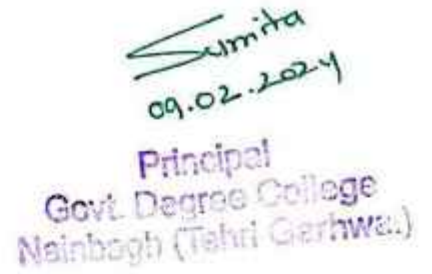 Sumita
09.02.2024
Principal
Govt. Degree College
Nainbagh (Tehri Garhwal)